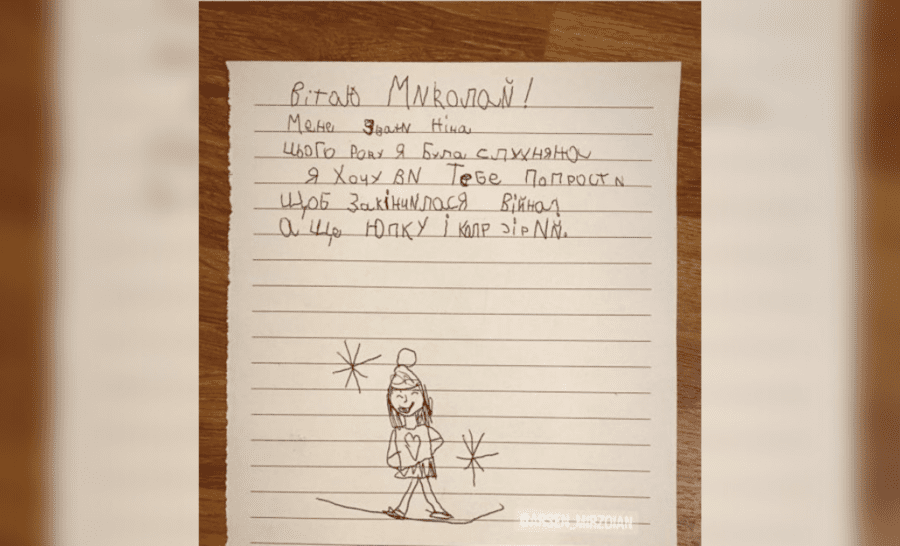 Вітаю Миколай!
Мене звати Ніна
Цього року я була слухняною
Я Хочу ви Тебе Попрости
щоб Закінчилася війна,
А ще Юпку і
@ARSEN_MIRZOIAN